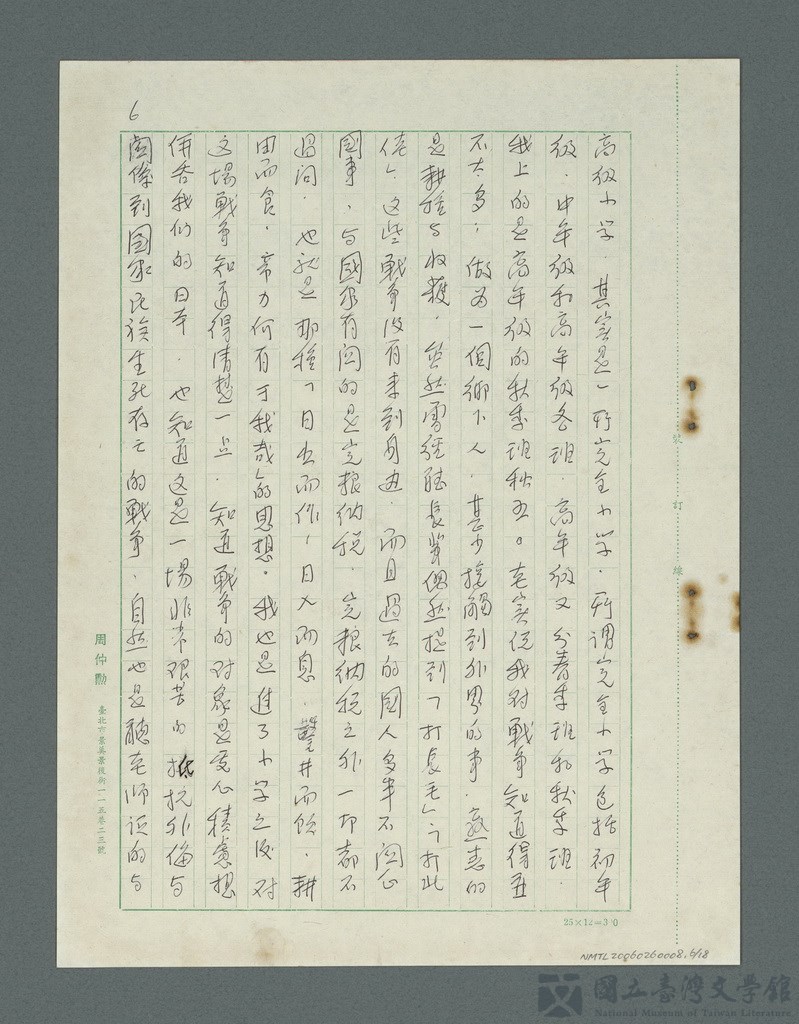 6
高级小学．其实是一所完全小学．所谓完全小学包括初年
级．中年级和高年级各班．高年级又分春季班和秋季班．
我上的是高年级的秋季班秋五。老实说我对战争知道得並
不太多，做为一個鄉下人．甚少接觸到外界的事．熟悉的
是耕種与收穫．虽然曾经聽長輩偶然提到「打長毛」「打此
佬」这些戰争没有来到身边．而且過去的國人多半不関心
國事，与國家有関的是完粮纳税．完粮纳税之外一切都不
過问．也就是那種「日出而作，日入而息．鑿井而飲．耕
田而食．帝力何有于我哉的思想。我也是進了小学之後对
这場戰争知道得清楚一点．知道戰争的对象是处心積慮想
併吞我们的日本．也知道这是一場非常艰苦的抵抗外侮与
関係到國家民族生死存亡的戰争．自然也是聽老师说的与
裝訂線
周仲勲
臺北市景美景後街一一五巷二三號
25×12=300
NMTL20060260008.6/18
國立臺灣文學館
National Museum of Taiwan Literature